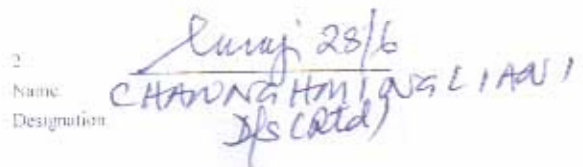 2.
28/6
Name: CHAWNGHMINGLIANI
Designation: D/s (Rtd)